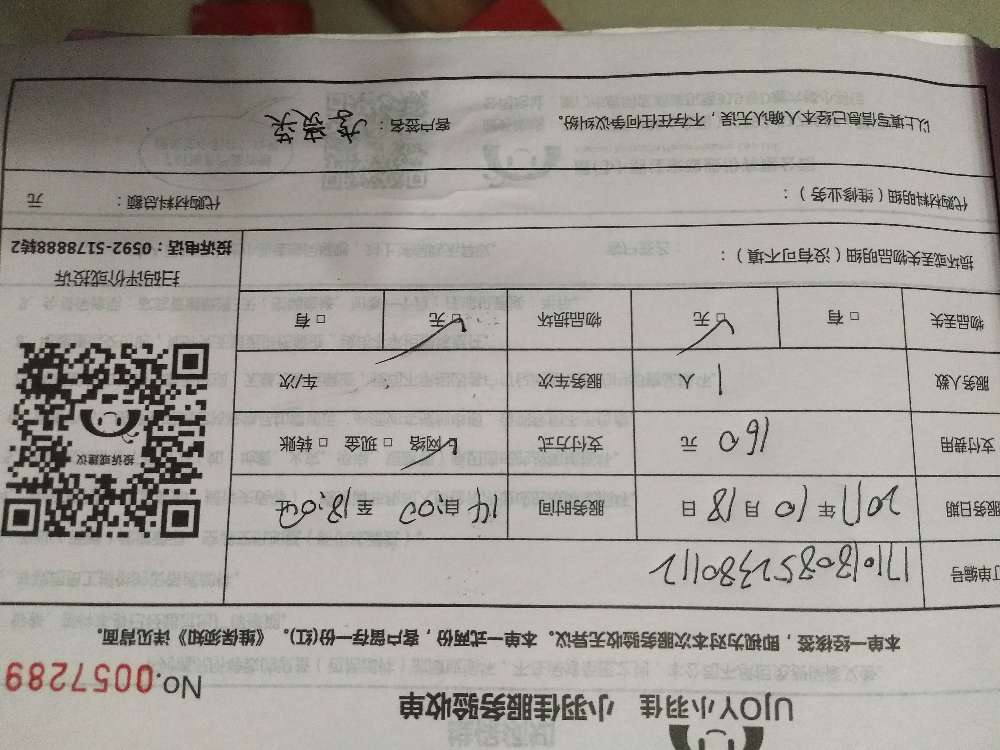 UJOY小羽佳 小羽佳服务验收单
No.0057289
本单一经核签，即视为对本次服务验收无异议。本单一式两份，客户留存一份(红)。《维保须知》详见背面。
订单编号 1710180852380112
服务日期 2017年10月18日 服务时间 14:00至18:00
支付费用 160元 支付方式 ☑网络 □现金 □转账
服务人数 1人 服务车次 车/次
物品丢失 □有 ☑无 物品损坏 ☑无 □有
损坏或丢失物品明细（没有可不填）：
投诉或建议
扫码评价或投诉
投诉电话：0592-5178888转2
代购材料明细（维修业务）： 代购材料总额： 元
以上填写信息已经本人确认无误，不存在任何争议纠纷。 客户签名：